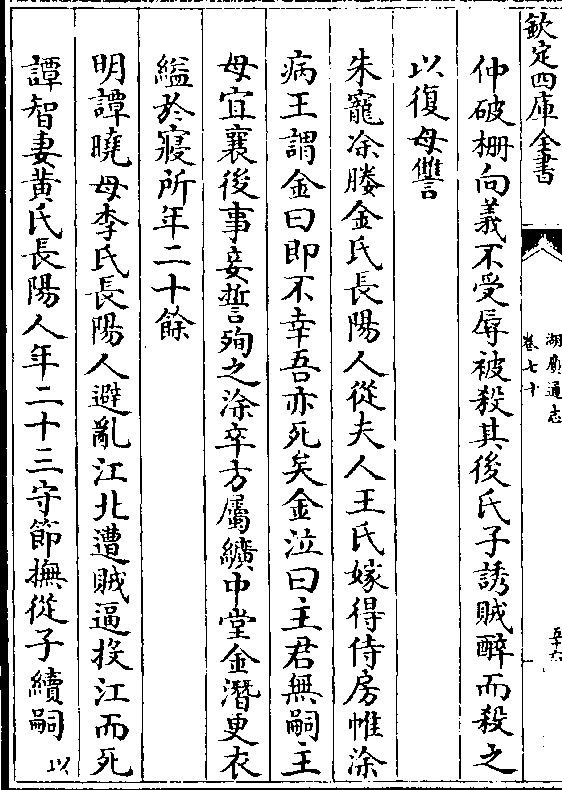 欽定四庫全書
湖廣通志
卷七十
五十六
仲破柵向義不受辱被殺其後氏子誘賊醉而殺之
以復母讐
朱寵涂媵金氏長陽人從夫人王氏嫁得侍房帷涂
病王謂金曰即不幸吾亦死矣金泣曰主君無嗣主
母宜襄後事妾誓殉之涂卒方屬纊中堂金潛更衣
縊於寢所年二十餘
明譚曉母李氏長陽人避亂江北遭賊逼投江而死
譚智妻黄氏長陽人年二十三守節撫從子續嗣以